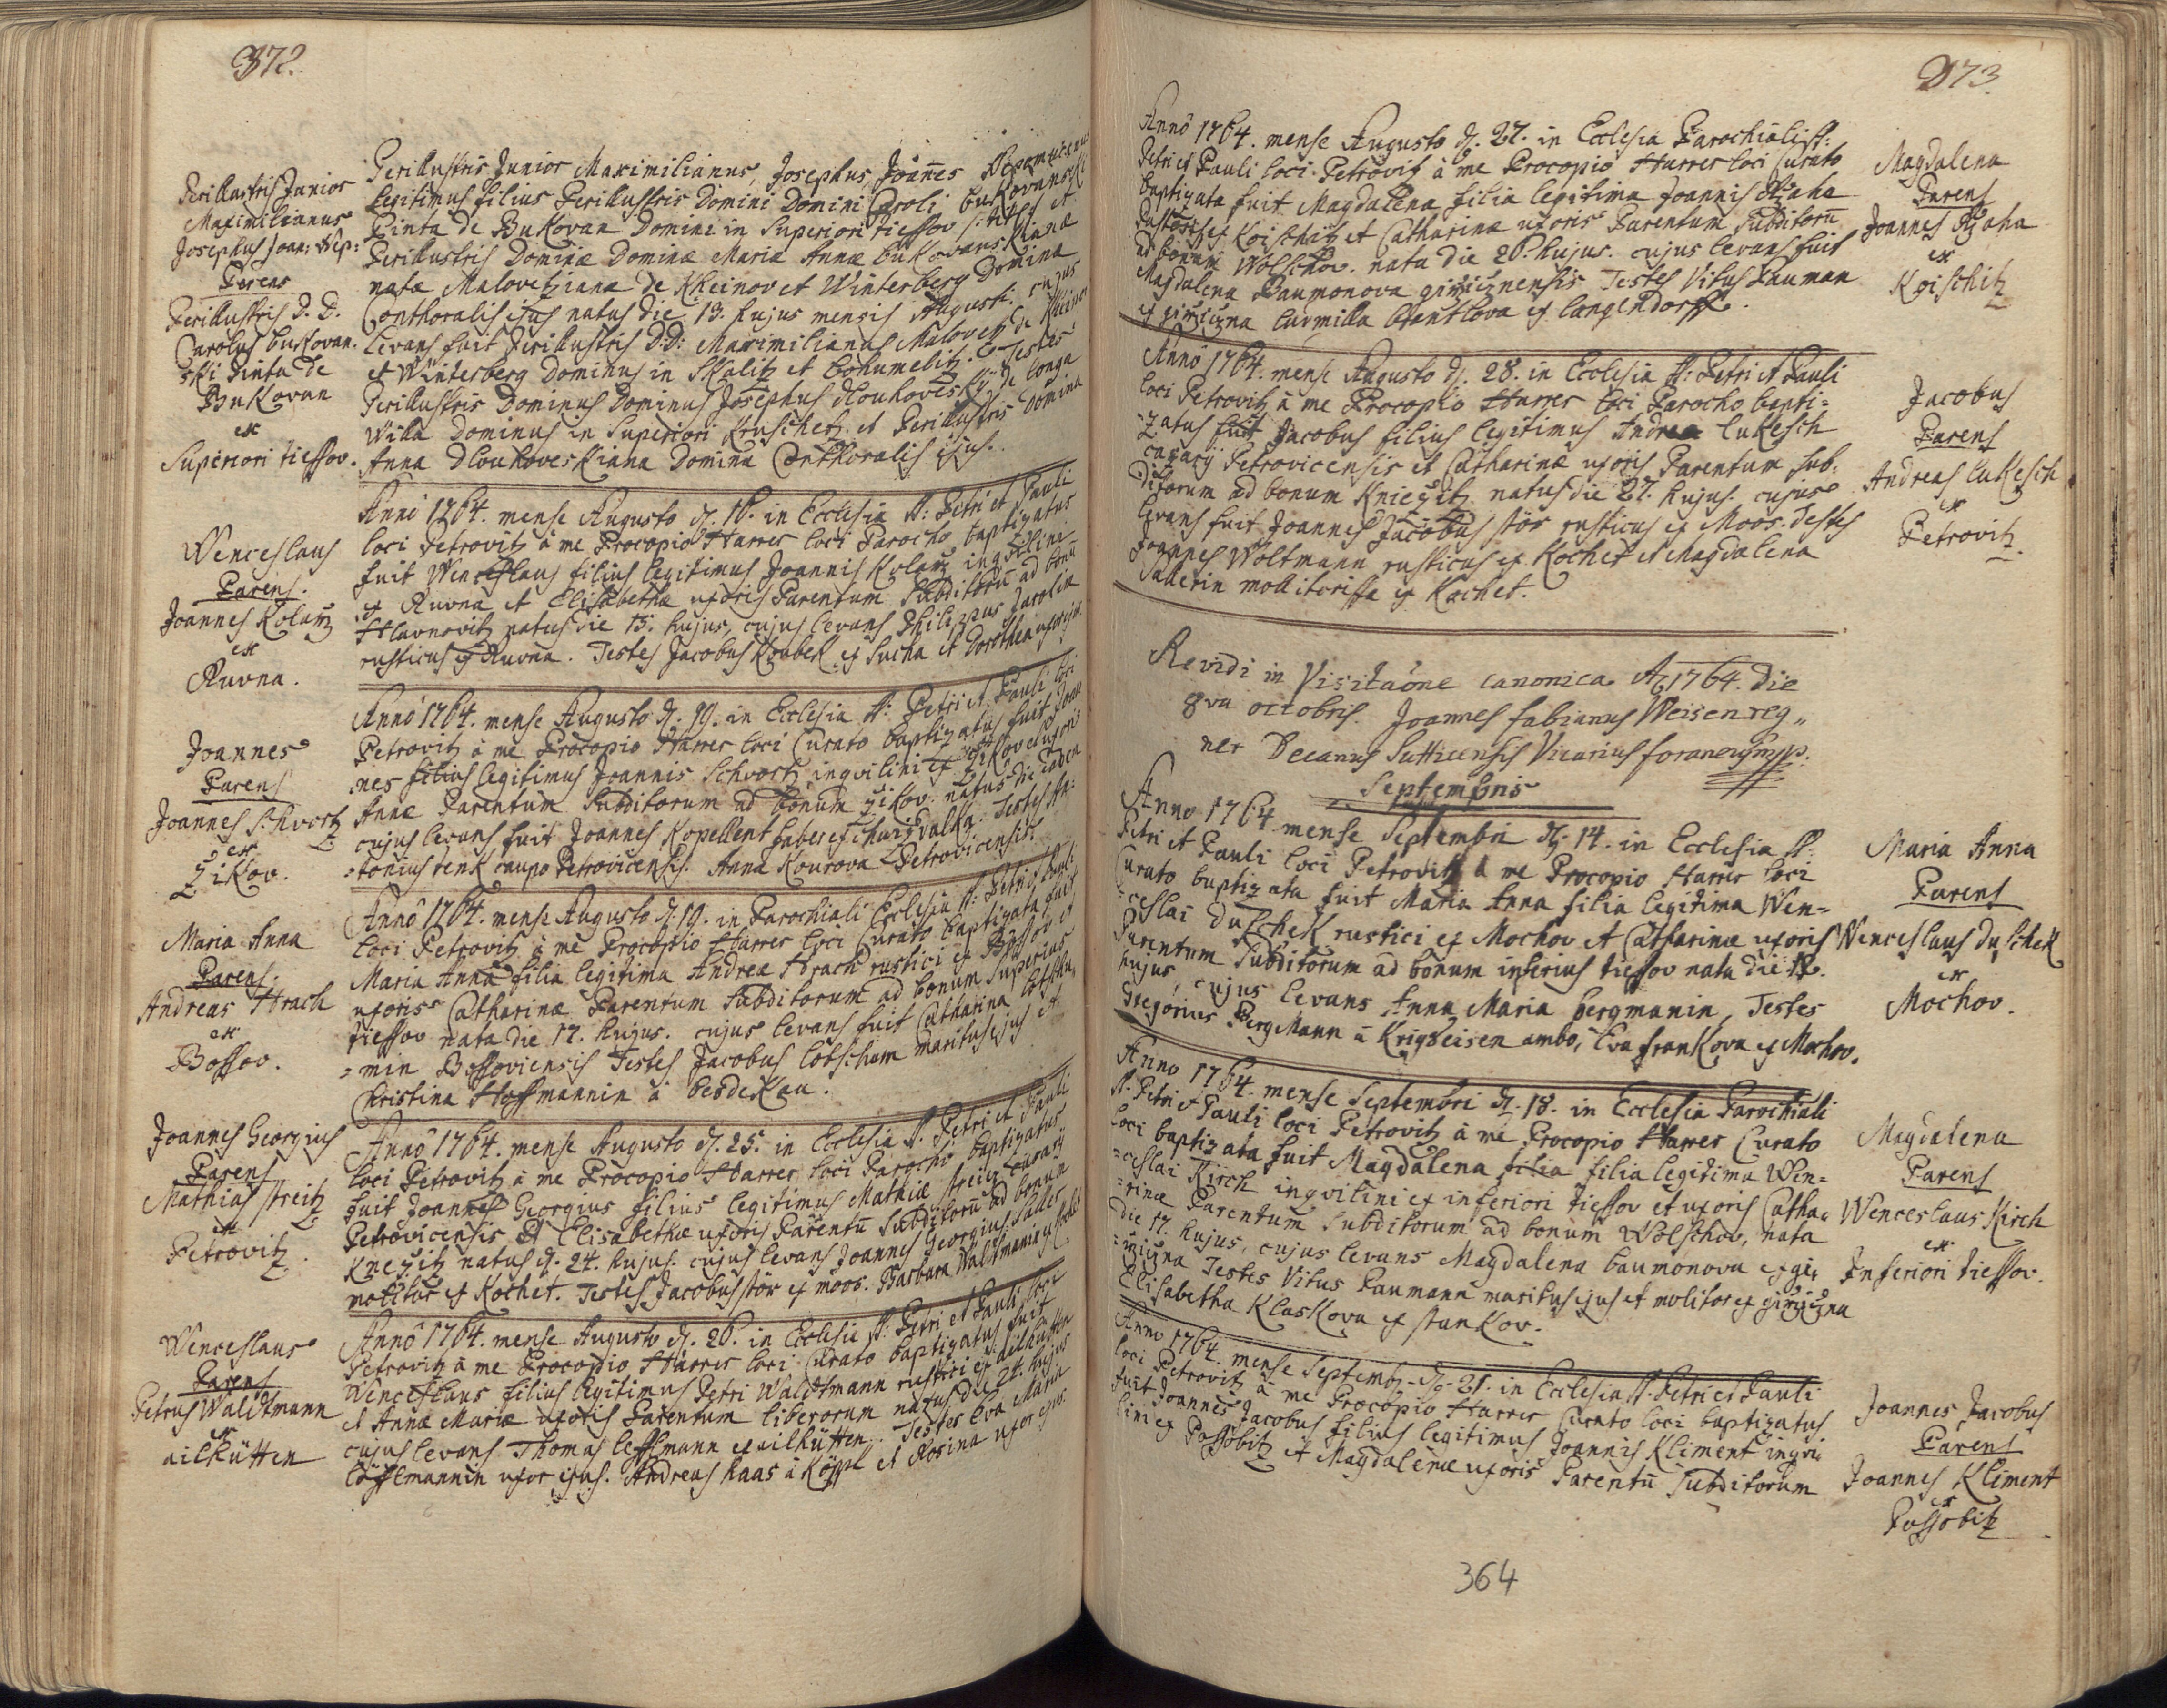 372.
Perillustris Junior
Maximilianus
Josephus Joan: Nep:
Parens
Perillustris D. D.
Carolus bukovan:
ski Pinta de
Bukovan
ex
Superiori tiessov.
Perillustris Junior Maximilianus, Josephus, Joañes
legitimus filius Perillustris Domini Domini Caroli bukovanski
Pinta de Bukovan Domini in Superiori tiessov et
Perillustris Dominæ Dominæ Mariæ Annæ bukovanskianæ
natæ Malovetzianæ de Kheinov et Winterberg Domina
Conthoralis ejus natus die 13. hujus mensis Augusti. cujus
levans fuit Perillustris D:D: Maximilianus Malovetz de Kheinov
et Winterberg Dominus in Skalitz et bohumelitz. Testes
Perillustris Dominus Dominus Josephus dlouhovesky de longa
Willa Dominus in Superiori Kruschetz. et Perillustris Domina
Anna Dlouhoveskiana Domina Conthoralis ejus.
Wenceslaus
Parens.
Joannes Kolarz
ex
Ruvna.
Anno 1764. mense Augusto d. 16. in Ecclesia SS: Petri et Pauli
loci Petrovitz à me Procopio Harrer loci Parocho baptizatus
fuit Wenceslaus filius legitimus Joannis Kolarz inqvilini
ex Ruvna et Elisabethæ uxoris Parentum Subditorũ ad bonũ
Hlavnovitz natus die 15. hujus, cujus levans Philippus Jarolim
rusticus ex Ruvna. Testes Jacobus Koubek ex Sucha et Dorothea uxor ejus.
Joannes
Parens
Joannes Schvortz
ex
Zikov.
Anno 1764. mense Augusto d. 19. in Ecclesia SS: Petri et Pauli loci
Petrovitz à me Procopio Harrer loci Curato baptizatus fuit Joan
nes filius legitimus Joannis Schvortz inqvilini ex Zikov et uxoris
Annæ Parentum Subditorum ad bonum Zikov. natus die eadem
cujus levans fuit Joannes Kopellent faber ex Testes An:
:tonius renk caupo Petrovicensis. Anna Kourova Petrovicensis.
Maria Anna
Parens.
Andreas Hrach
ex
Bossov.
Anno 1764. mense Augusto d. 19. in Parochiali Ecclesia SS: Petri et Pauli
loci Petrovitz à me Procopio Harrer loci Curato baptizata fuit
Maria Anna filia legitima Andreæ Hrach rustici ex Bossov et
uxoris Catharinæ Parentum Subditorum ad bonum Superius
tiessov nata die 17. hujus. cujus levans fuit Catharina lobschu
=min Bossoviensis Testes Jacobus lobschum maritus ejus et
Christina Hoffmannin à besdekau.
Joannes Georgius
Parens
Mathias streitz
ex
Petrovitz.
Anno 1764. mense Augusto d. 25. in Ecclesia SS. Petri et Pauli
loci Petrovitz à me Procopio Harrer loci Parocho baptizatus
fuit Joannes Georgius filius legitimus Mathiæ streitz casarÿ
Petrovicensis et Elisabethæ uxoris Parentũ Subditorũ ad bonum
Knezitz natus d. 24. hujus. cujus levans Joannes Georgius Saller
molitor ex Kochet. Testes Jacobus stör ex moos. Barbara Waltmanin ex
Wenceslaus
Parens
Petrus Waldtmann
ex
ailhütten
Anno 1764. mense Augusto d. 26. in Ecclesia SS: Petri et Pauli loci
Petrovitz à me Procopio Harrer loci Curato baptizatus fuit
Wenceslaus filius legitimus Petri Waldtmann rustici ex ailhütten
et Annæ Mariæ uxoris Parentum liberorum natus die 24. hujus
cujus levans Thomas leffelmann ex ailhütten. Testes Eva Maria
löfflmannin uxor ejus. Andreas haas à Köppl et Rosina uxor ejus.
373.
Anno 1764. mense Augusto d. 27. in Ecclesia Parochiali SS:
Petri et Pauli loci Petrovitz à me Procopio Harrer loci Curato
baptizata fuit Magdalena filia legitima Joannis Rzaha
Pastoris ex Koischitz et Catharinæ uxoris Parentum Subditorũ
ad bonum Wolschov. nata die 26. hujus. cujus levans fuit
Magdalena Baumonova girzicznensis Testes Vitus Bauman
ex girziczna ludmilla ex langendorff.
Magdalena
Parens
Joannes Rzaha
ex
Koischitz
Anno 1764. mense Augusto d. 28. in Ecclesia SS: Petri et Pauli
loci Petrovitz à me Procopio Harrer loci Parocho bapti=
=zatus fuit Jacobus filius legitimus Andreæ lukesch
casarÿ Petrovicensis et Catharinæ uxoris Parentum Sub:
ditorum ad bonum Kniezitz natus die 27. hujus. cujus
levans fuit Joannes Jacobus stör rusticus ex Moos. Testes
Joannes Woltmann rusticus ex Kochet et Magdalena
Sallerin mollitorissa ex Kochet.
Jacobus
Parens
Andreas lukesch
ex
Petrovitz.
Revidi in Visitaõne canonica Aº 1764. Die
8va octobris. Joannes fabianus Weisenreg„
ner Decanus Sutticensis Vicarius foraneus mpp.
Septembris
Anno 1764 mense Septembri d. 14. in Ecclesia SS.
Petri et Pauli loci Petrovitz à me Procopio Harrer loci
Curato baptizata fuit Maria Anna filia legitima Wen=
=ceslai duschek rustici ex Mochov et Catharinæ uxoris
Parentum Subditorum ad bonum inferius tiessov nata die 12.
hujus, cujus levans Anna Maria bergmanin, Testes
Gregorius BergMann à Krigseisen ambo, Eva frankova ex Mochov.
Maria Anna
Parens
Wenceslaus duschek
ex
Mochov.
Anno 1764. mense Septembri d. 18. in Ecclesia Parochiali
SS. Petri et Pauli loci Petrovitz à me Procopio Harrer Curato
loci baptizata fuit Magdalena filia filia legitima Wen=
=ceslai Kirch inqvilini ex inferiori tiessov et uxoris Catha„
=rinæ Parentum Subditorum ad bonum Wolschov, nata
die 17. hujus, cujus levans Magdalena baumonova ex gi„
=rziczna Testes Vitus Paumann maritus ejus et molitor ex girziczna
Elisabetha Klaskova ex stankov.
Magdalena
Parens
Wenceslaus Kirch
ex
Inferiori tiessov.
Anno 1764. mense Septemb: d. 21. in Ecclesia SS. Petri et Pauli
loci Petrovitz à me Procopio Harrer Curato loci baptizatus
fuit Joannes Jacobus filius legitimus Joannis Kliment inqvi
lini ex Possobitz et Magdalenæ uxoris Parentũ Subditorum
Joannes Jacobus
Parens
Joannes Kliment
ex
Possobitz
364